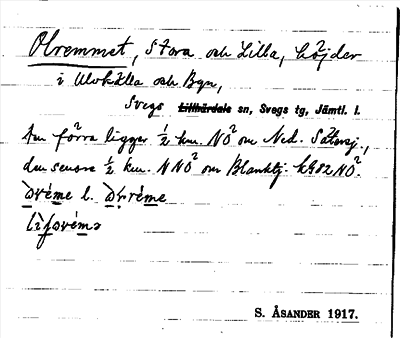 Olremmet, Stora och Lilla, höjder
i Ulvkälla och Byn,
Svegs Lillhärdals sn, Svegs tg, Jämtl. l.
den förra ligger ½ km. NÖ om Ned. Sätersj.,
den senare ½ km. NNÖ om Blanktj. kG82NÖ.
S. ÅSANDER 1917.